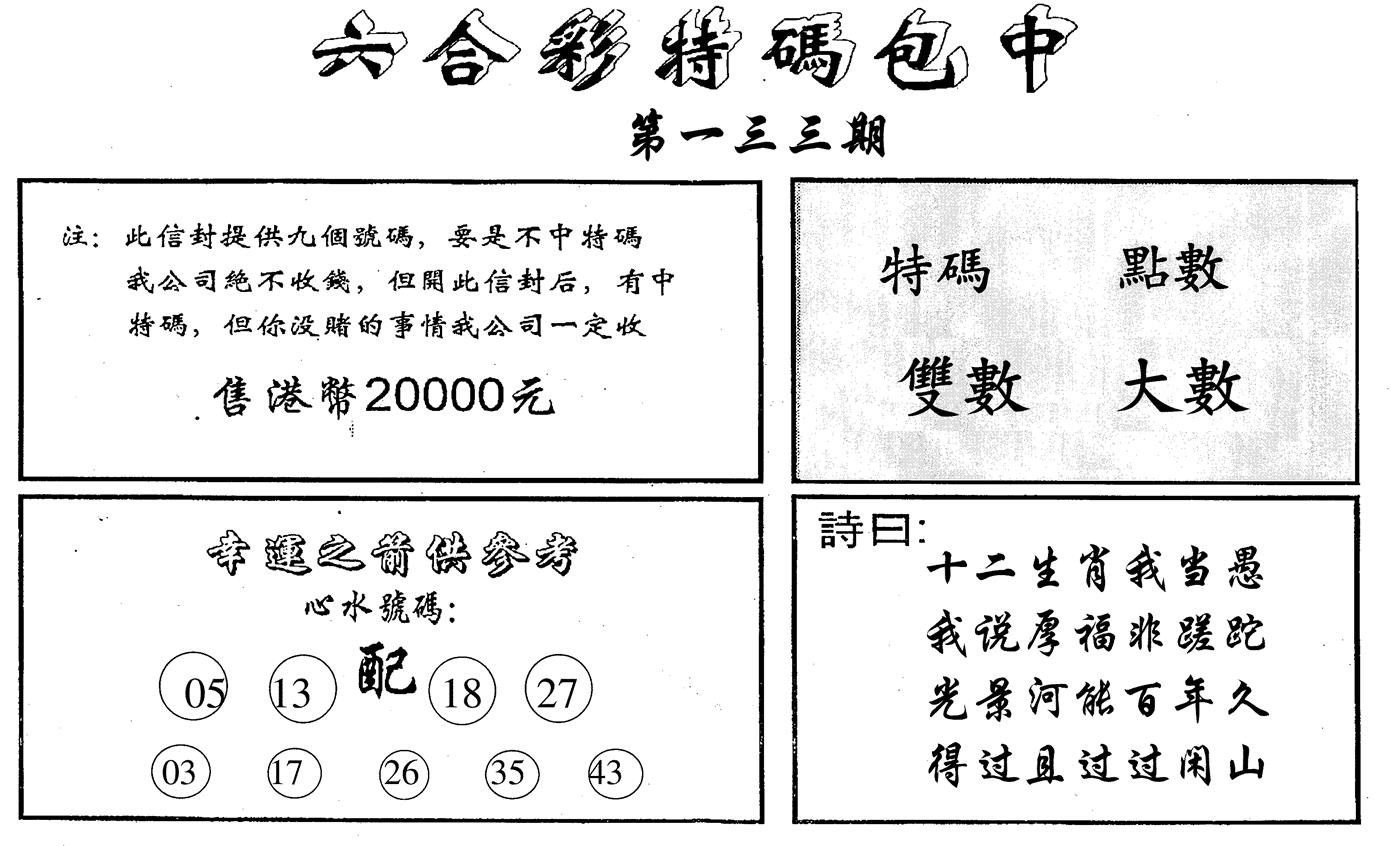 六合彩特碼包中
第一三三期
注：此信封提供九個號碼，要是不中特碼
我公司絶不收錢，但開此信封后，有中
特碼，但你没賭的事情我公司一定收
售港幣20000元
特碼 點數
雙數 大數
幸運之箭供參考
心水號碼：
05 13 配 18 27
03 17 26 35 43
詩曰：
十二生肖我当愚
我说厚福非蹉跎
光景河能百年久
得过且过过闲山